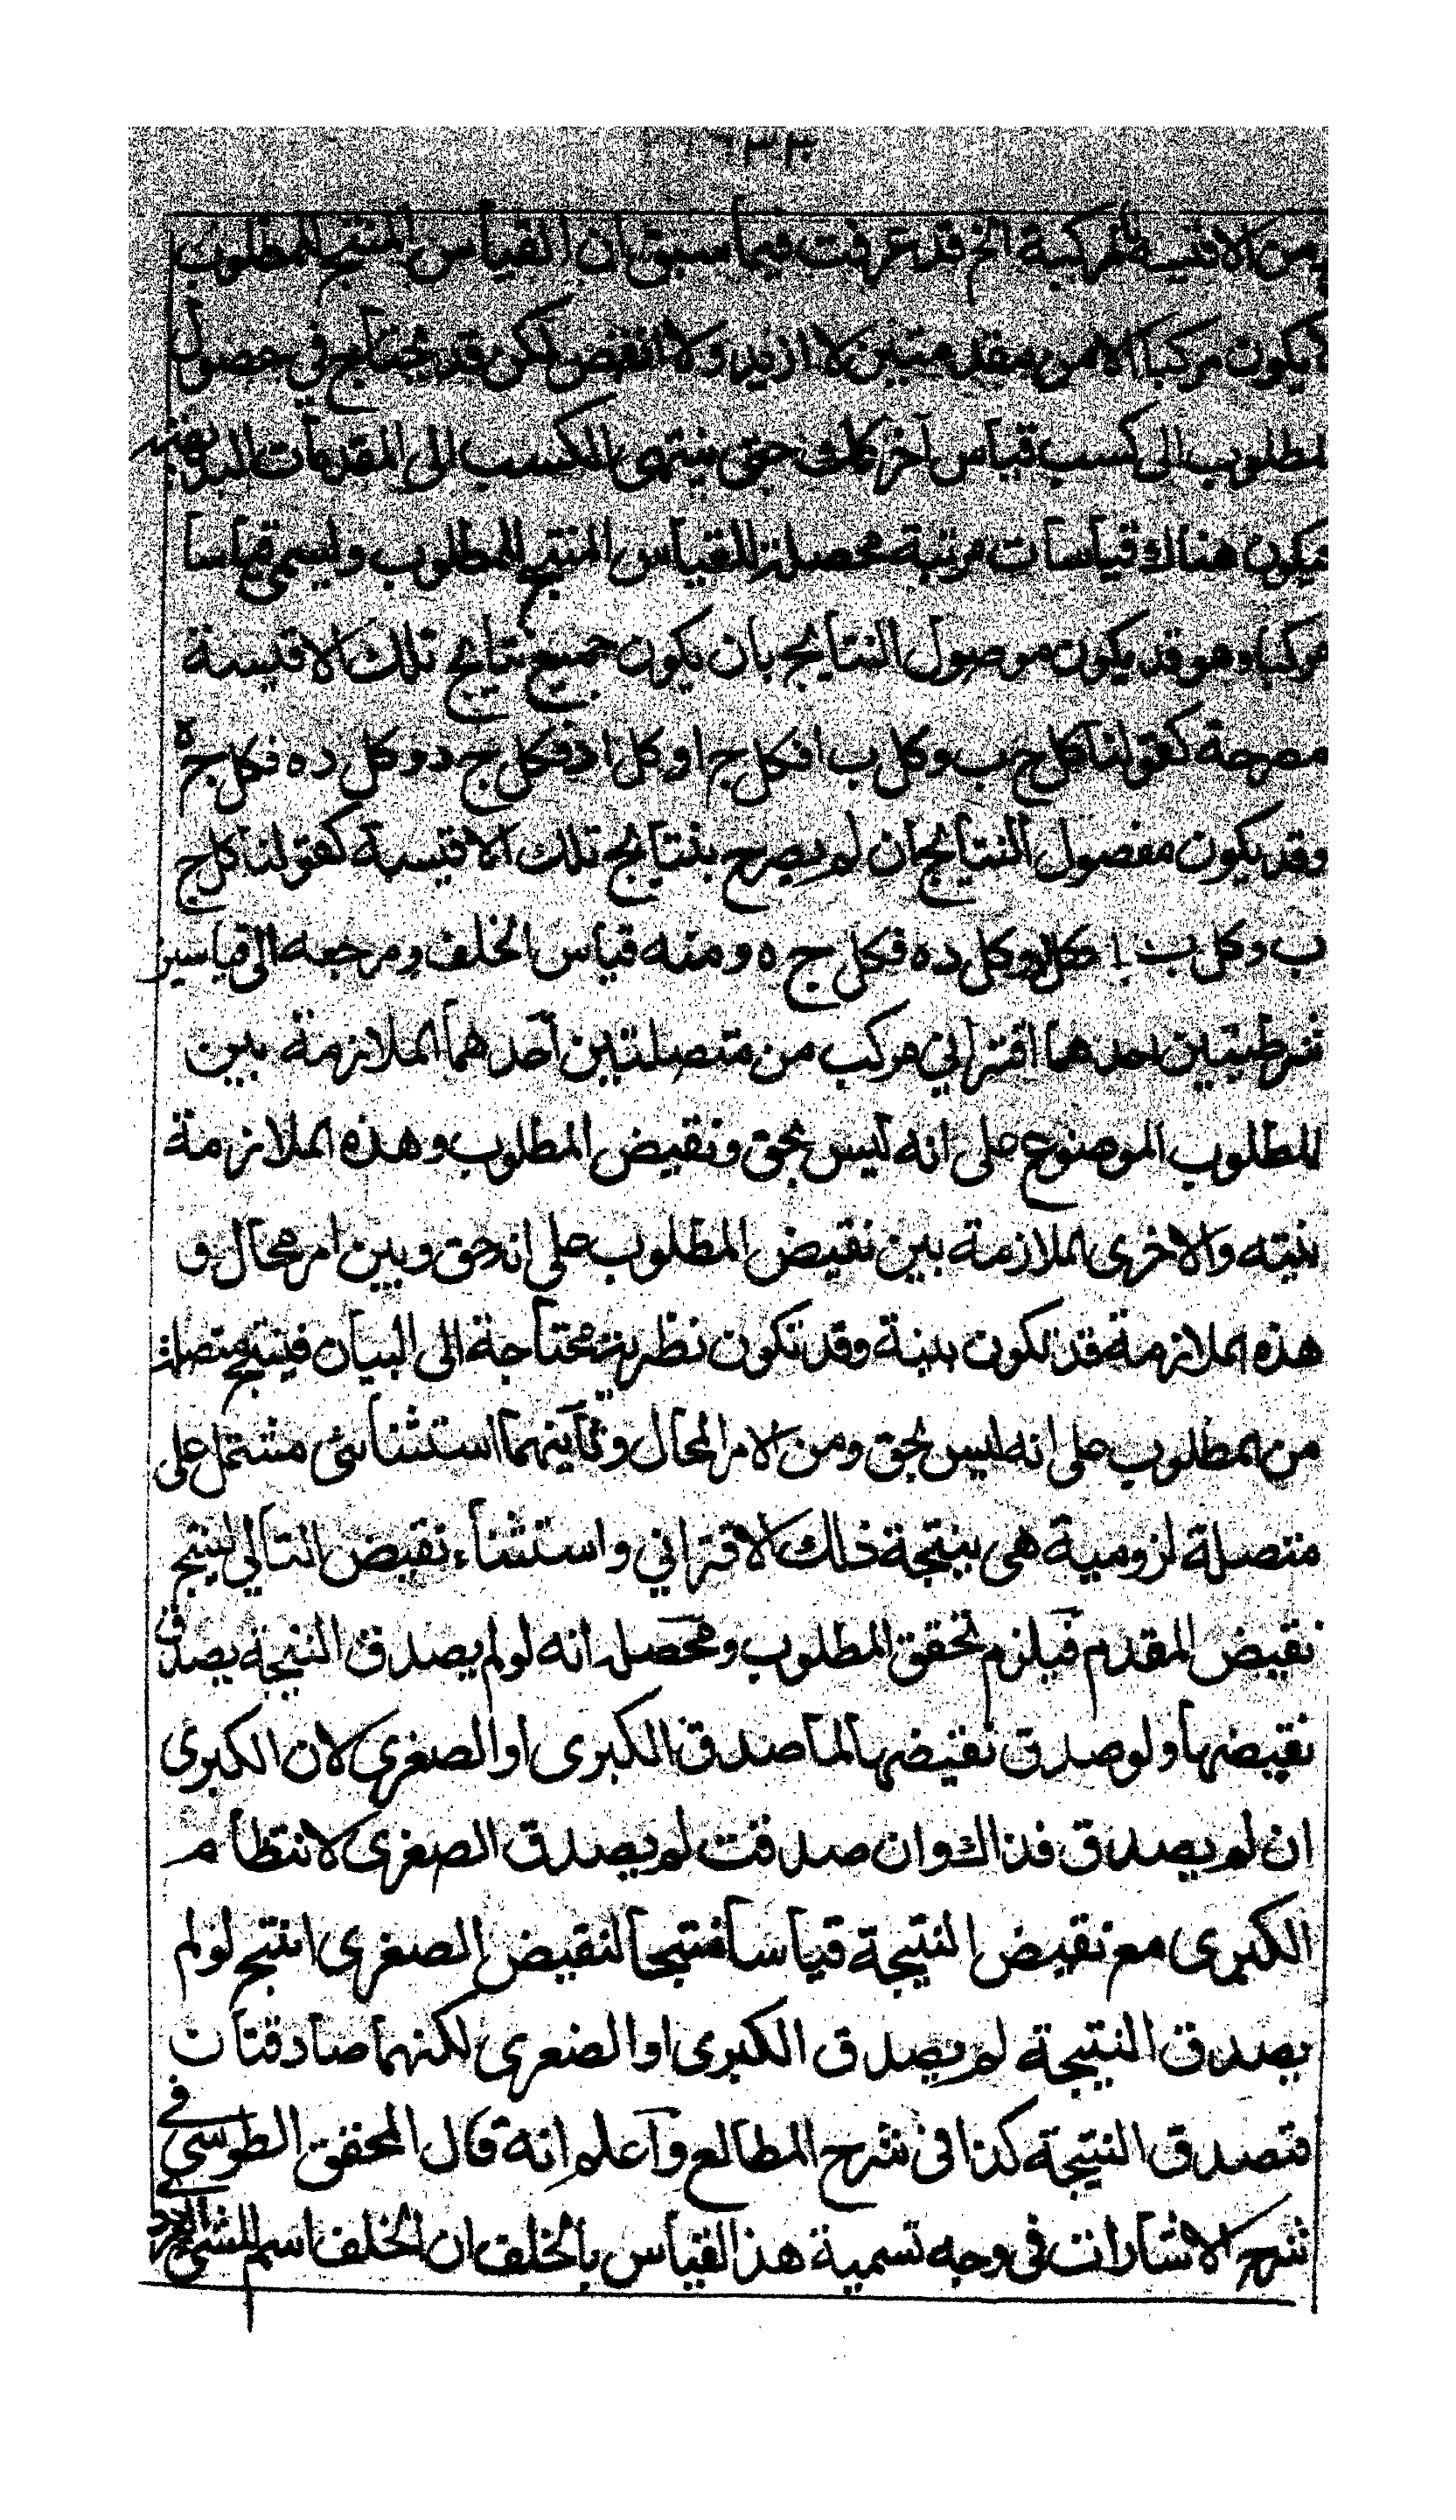 ٦٣٣
من الاقيسة المركبة الخ قد عرفت فيما سبق ان القياس المنتج للمطلوب
لا يكون مركبا الا من مقدمتين لا ازيد ولا انقص لكن قد يحتاج في حصول
المطلوب الى كسب قياس آخر كذلك حتى ينتهى الكسب الى المقدمات البديهية
فيكون هناك قياسات مرتبة محصلة للقياس المنتج للمطلوب وليسمى قياسا
مركبا وهو قد يكون موصول النتايج بان يكون جميع نتايج تلك الاقيسة
مصرحة كقولنا كل ج ب وكل ب ا فكل ج ا وكل ا د فكل ج د وكل د ه فكل ج ه
وقد يكون مفصول النتايج ان لم يصرح بنتايج تلك الاقيسة كقولنا كل ج
ب وكل ب ا وكل ا د وكل د ه فكل ج ه ومنه قياس الخلف ومرجعه الى قياسين
شرطيتين احدهما اقتراني مركب من متصلتين احدهما الملازمة بين
المطلوب الموضوع على انه ليس بحق ونقيض المطلوب وهذه الملازمة
بنيته والاخرى الملازمة بين نقيض المطلوب على انه حق وبين امر محال و
هذه الملازمة قد تكون بنية وقد تكون نظرية محتاجة الى البيان فينتج متصلة
من المطلوب على انه ليس بحق ومن الامر المحال وثانيهما استثنائى مشتمل على
متصلة لزومية هى نتيجة ذلك الاقتراني واستثناء نقيض التالي لينتج
نقيض المقدم فيلزم تحقق المطلوب ومحصله انه لو لم يصدق النتيجة يصدق
نقيضها ولو صدق نقيضها لما صدق الكبرى او الصغرى لان الكبرى
ان لم يصدق فذاك وان صدقت لم يصدق الصغرى لانتظام
الكبرى مع نقيض النتيجة قياسا منتجا لنقيض الصغرى انتج لو لم
يصدق النتيجة لم يصدق الكبرى او الصغرى لكنهما صادقتان
فتصدق النتيجة كذا في شرح المطالع واعلم انه قال المحقق الطوسي في
شرح الاشارات في وجه تسمية هذا القياس بالخلف ان الخلف اسم للشئ